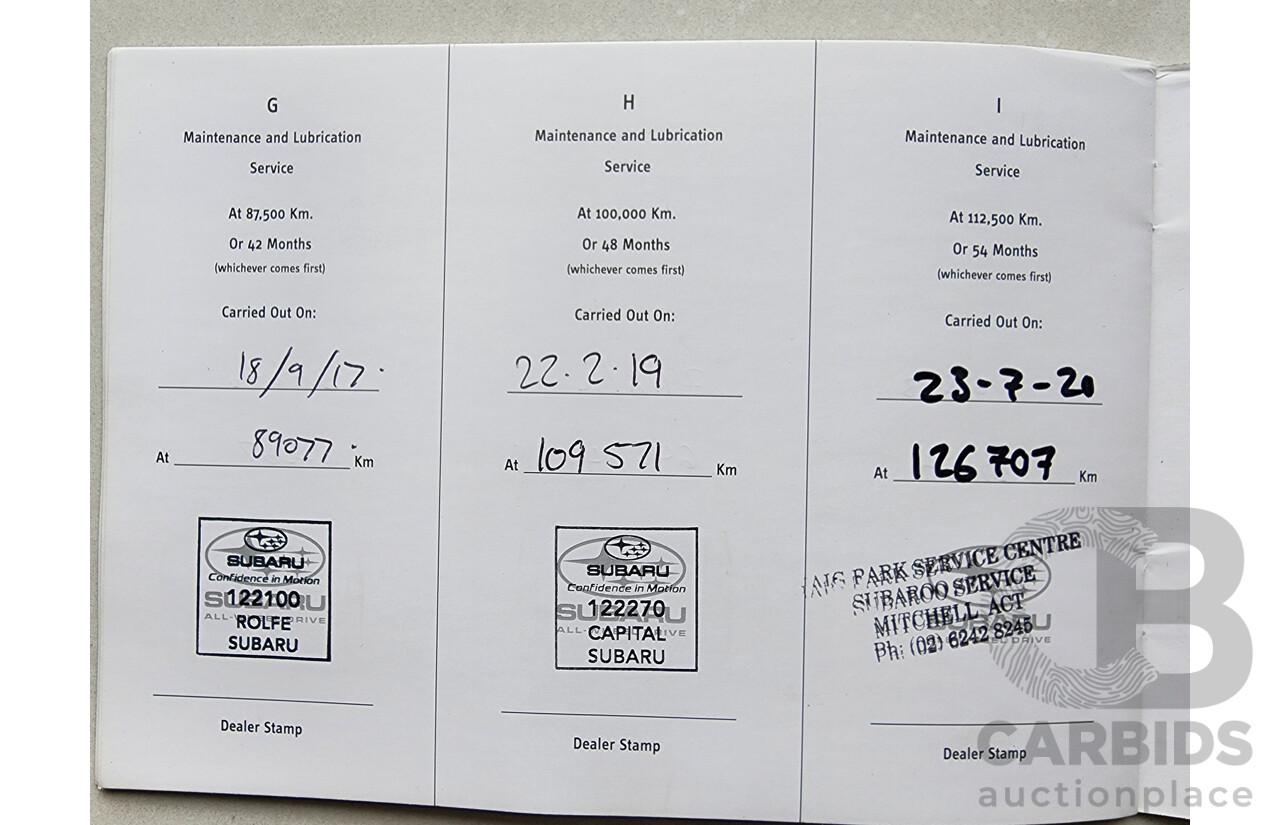 G
Maintenance and Lubrication
Service
At 87,500 Km.
Or 42 Months
(whichever comes first)
Carried Out On:
18/9/17.
At 89077 Km
SUBARU
Confidence in Motion
122100
ROLFE
SUBARU
SUBARU
ALL-WHEEL DRIVE
Dealer Stamp
H
Maintenance and Lubrication
Service
At 100,000 Km.
Or 48 Months
(whichever comes first)
Carried Out On:
22.2.19
At 109 571 Km
SUBARU
Confidence in Motion
122270
CAPITAL
SUBARU
SUBARU
ALL-WHEEL DRIVE
Dealer Stamp
I
Maintenance and Lubrication
Service
At 112,500 Km.
Or 54 Months
(whichever comes first)
Carried Out On:
23-7-20
At 126707 Km
PARK SERVICE CENTRE
SUBAROO SERVICE
MITCHELL ACT
Ph: (02) 6242 8245
Dealer Stamp
CARBIDS
auctionplace